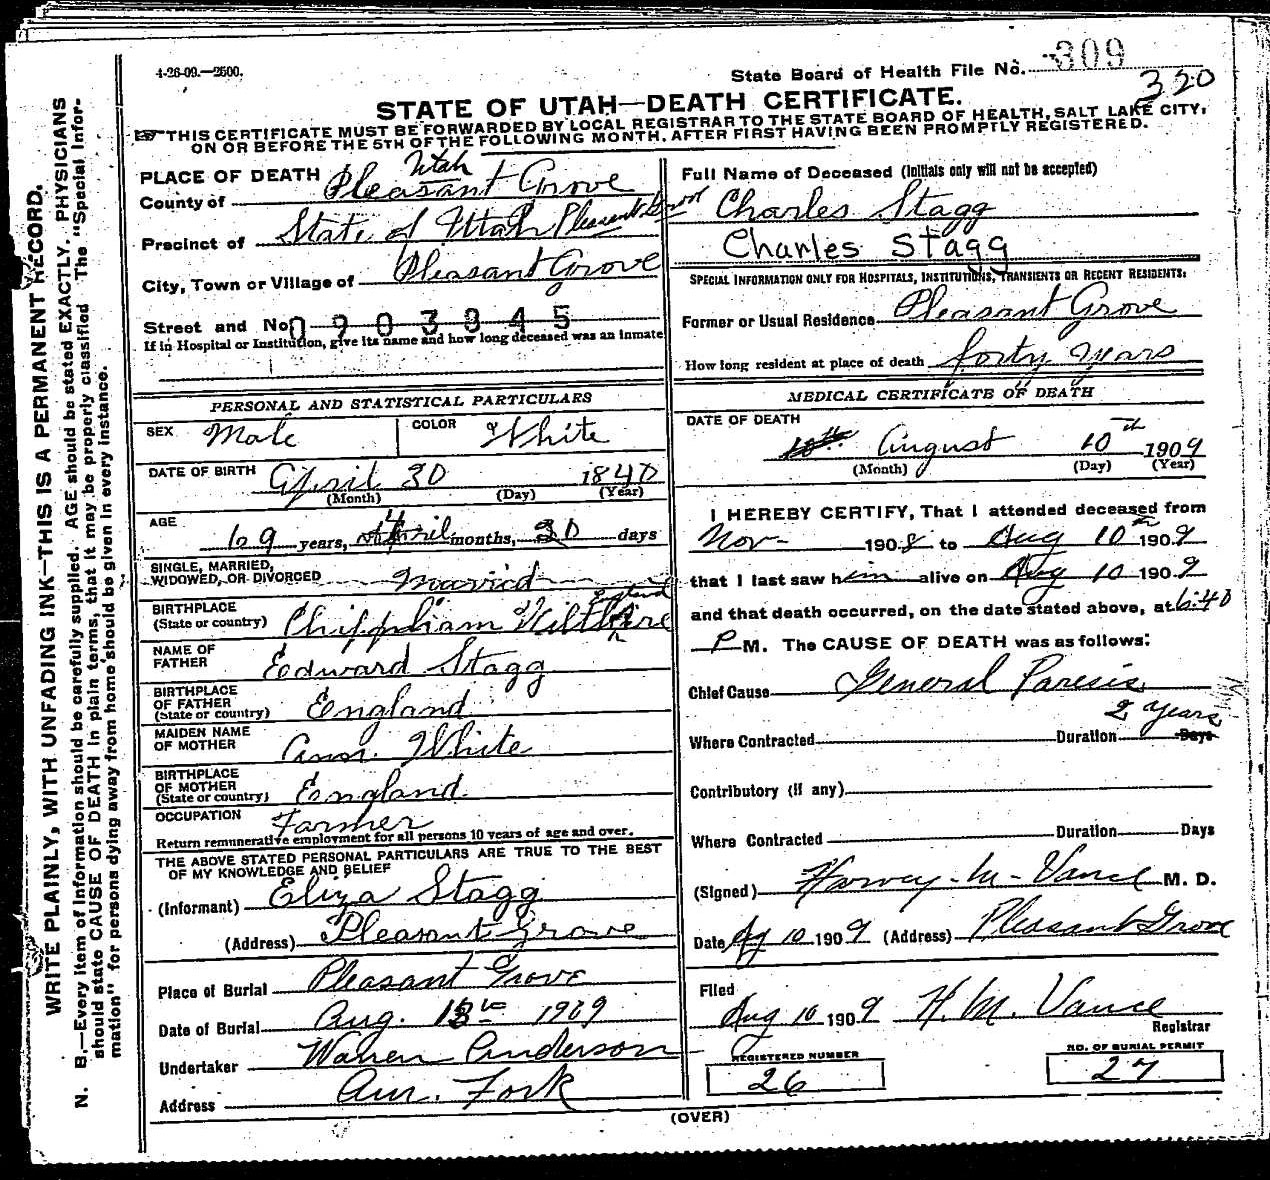 4-26-09.—2500.
State Board of Health File No. 309
320
STATE OF UTAH—DEATH CERTIFICATE.
THIS CERTIFICATE MUST BE FORWARDED BY LOCAL REGISTRAR TO THE STATE BOARD OF HEALTH, SALT LAKE CITY,
ON OR BEFORE THE 5TH OF THE FOLLOWING MONTH, AFTER FIRST HAVING BEEN PROMPTLY REGISTERED.
WRITE PLAINLY, WITH UNFADING INK—THIS IS A PERMANENT RECORD.
N. B.—Every item of information should be carefully supplied. AGE should be stated EXACTLY. PHYSICIANS
should state CAUSE OF DEATH in plain terms, that it may be properly classified. The "Special Infor-
mation" for persons dying away from home should be given in every instance.
PLACE OF DEATH
Utah
County of Pleasant Grove
Precinct of State of Utah Pleasant Grove
City, Town or Village of Pleasant Grove
Street and No. 0903845
If in Hospital or Institution, give its name and how long deceased was an inmate
PERSONAL AND STATISTICAL PARTICULARS
SEX Male COLOR White
DATE OF BIRTH April 30 1840
(Month) (Day) (Year)
AGE
69 years, 4 April months, 30 days
SINGLE, MARRIED,
WIDOWED, OR DIVORCED Married
BIRTHPLACE
(State or country) Chippham Wiltshire England
NAME OF
FATHER Edward Stagg
BIRTHPLACE
OF FATHER
(State or country) England
MAIDEN NAME
OF MOTHER Ann White
BIRTHPLACE
OF MOTHER
(State or country) England
OCCUPATION Farmer
Return remunerative employment for all persons 10 years of age and over.
THE ABOVE STATED PERSONAL PARTICULARS ARE TRUE TO THE BEST
OF MY KNOWLEDGE AND BELIEF
(Informant) Eliza Stagg
(Address) Pleasant Grove
Place of Burial Pleasant Grove
Date of Burial Aug. 1909
Undertaker Warren Anderson
Address Am. Fork
Full Name of Deceased (Initials only will not be accepted)
Charles Stagg
Charles Stagg
SPECIAL INFORMATION ONLY FOR HOSPITALS, INSTITUTIONS, TRANSIENTS OR RECENT RESIDENTS:
Former or Usual Residence Pleasant Grove
How long resident at place of death forty years
MEDICAL CERTIFICATE OF DEATH
DATE OF DEATH
10th August 10th 1909
(Month) (Day) (Year)
I HEREBY CERTIFY, That I attended deceased from
Nov- 1908 to Aug 10th 1909
that I last saw him alive on Aug 10 1909
and that death occurred, on the date stated above, at 6:40
P M. The CAUSE OF DEATH was as follows:
Chief Cause General Paresis
2 years
Where Contracted Duration Days
Contributory (if any)
Where Contracted Duration Days
(Signed) Harvey-M-Vance M. D.
Date Ag 10 1909 (Address) Pleasant Grove
Filed
Aug 10 1909 H. M. Vance
Registrar
REGISTERED NUMBER
26
NO. OF BURIAL PERMIT
27
(OVER)